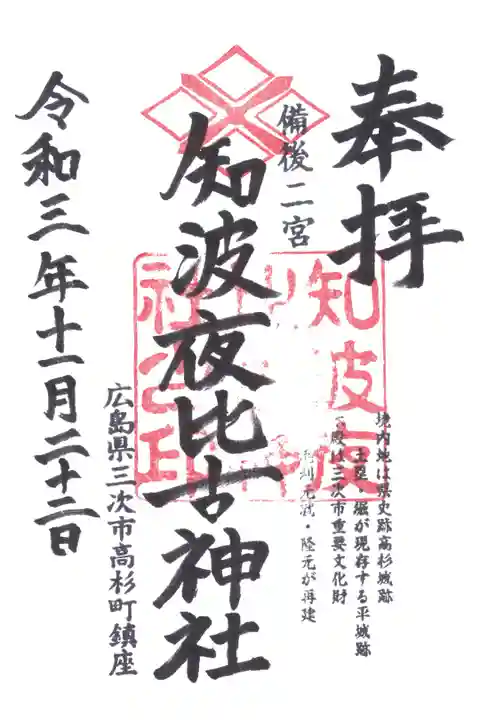 奉拝
備後二宮
知波夜比古神社
境内地は県史跡高杉城跡
土塁・堀が現存する平城跡
本殿は三次市重要文化財
毛利元就・隆元が再建
広島県三次市高杉町鎮座
令和三年十一月二十三日